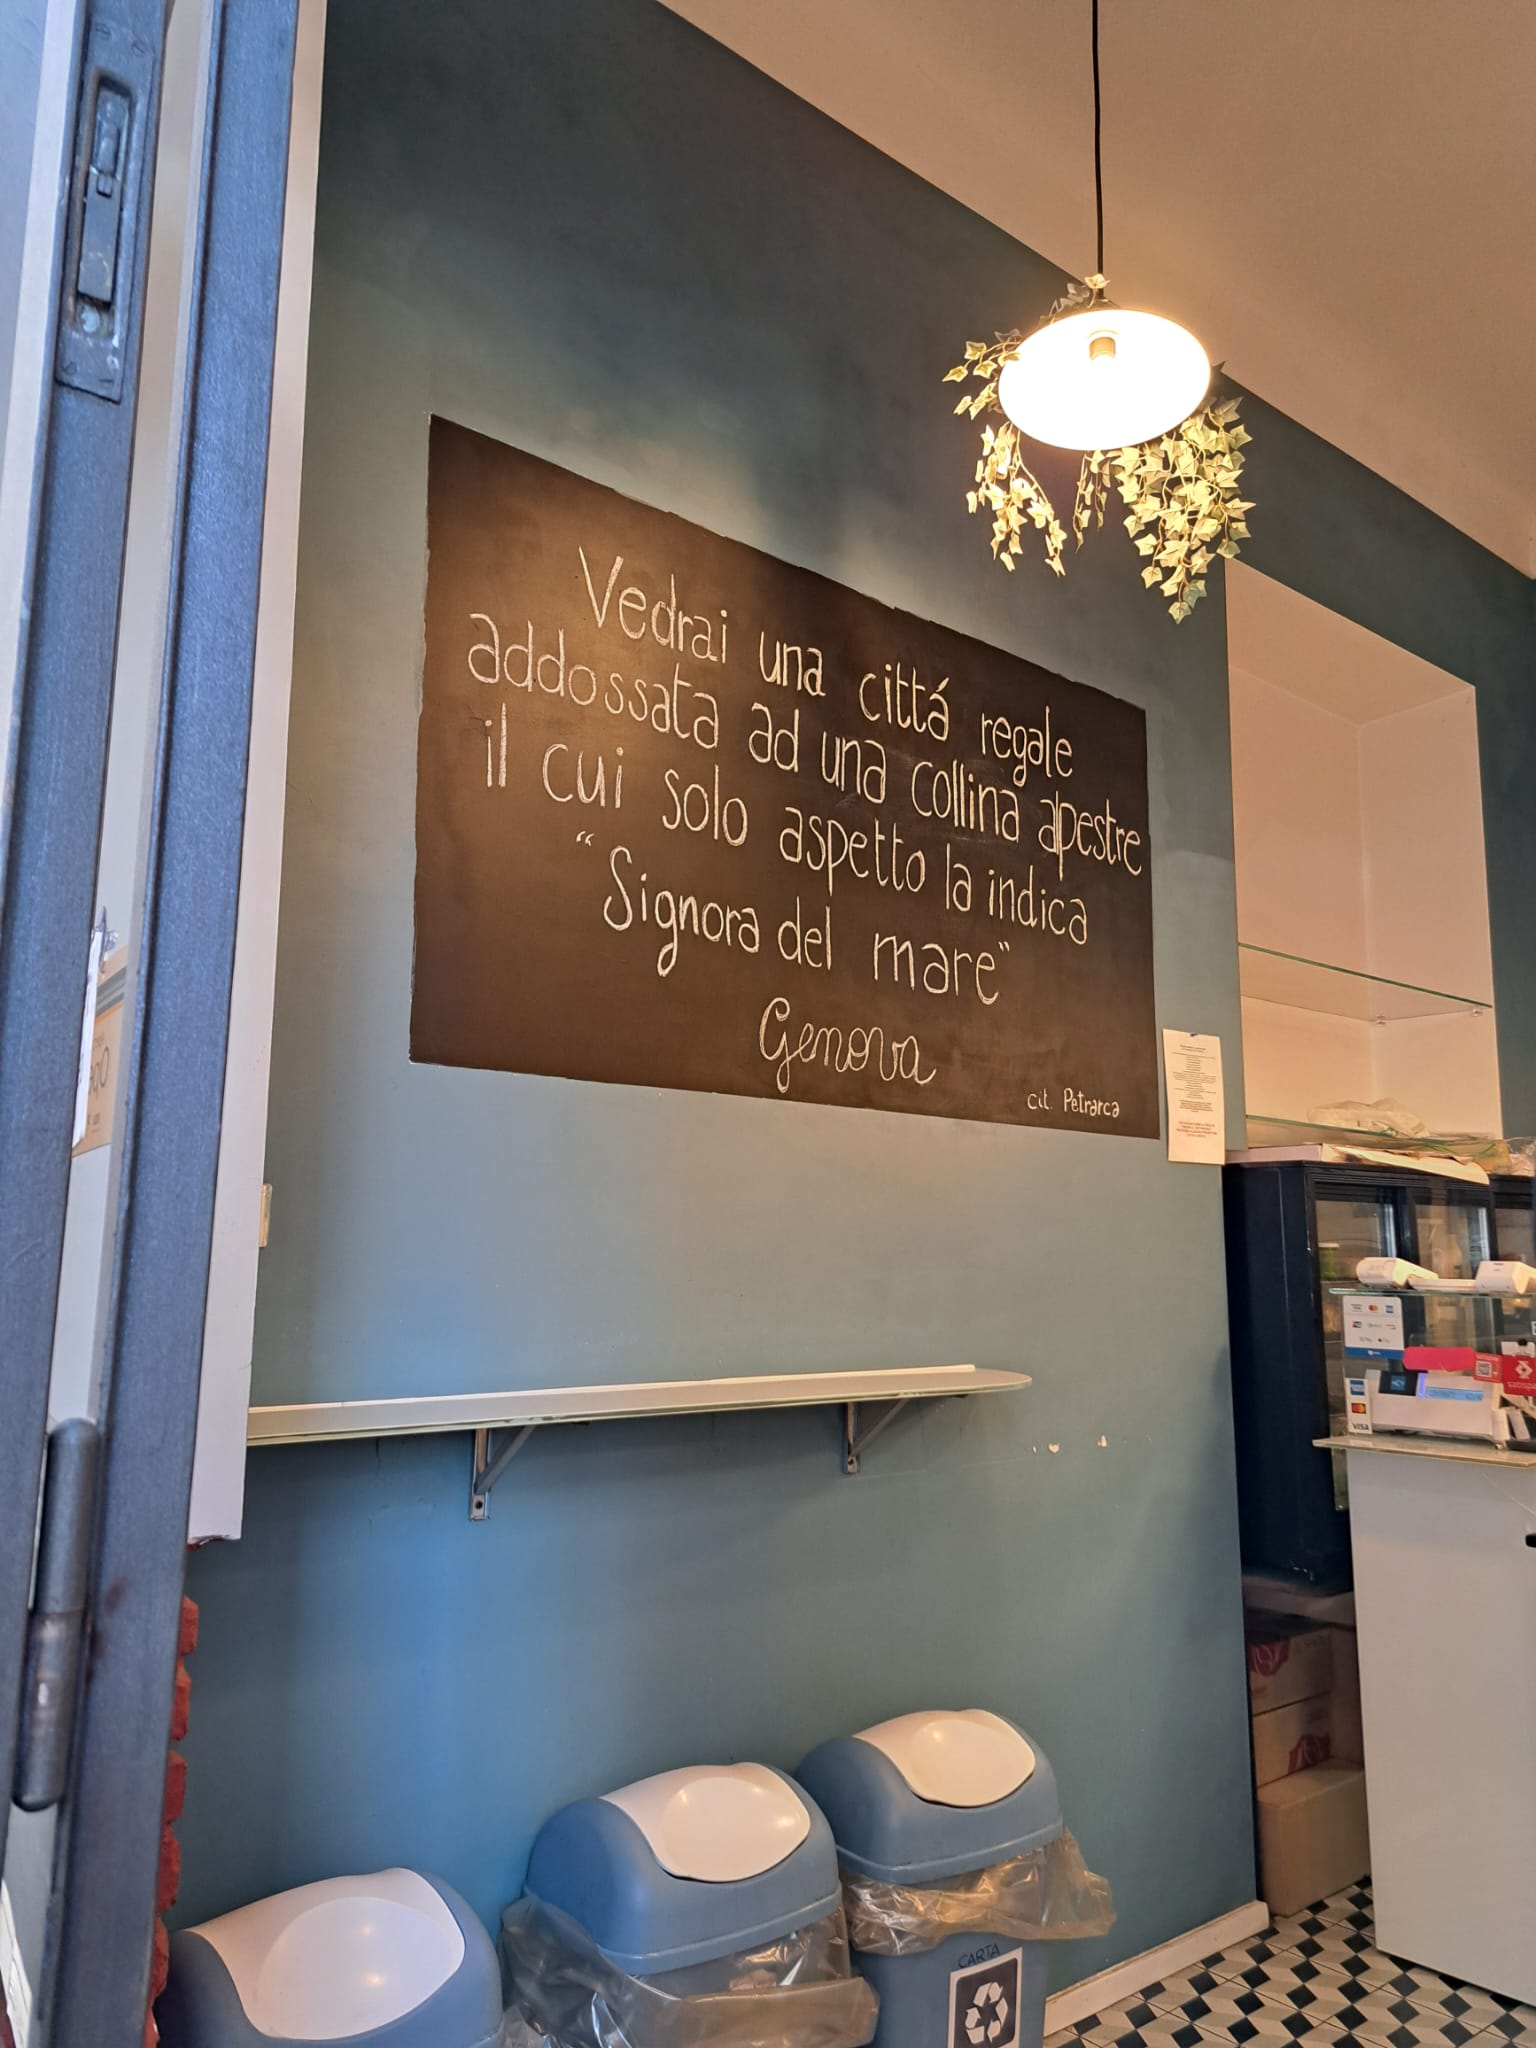 Vedrai una cittá regale
addossata ad una collina alpestre
il cui solo aspetto la indica
“Signora del mare”
Genova
cit. Petrarca
CARTA
VISA